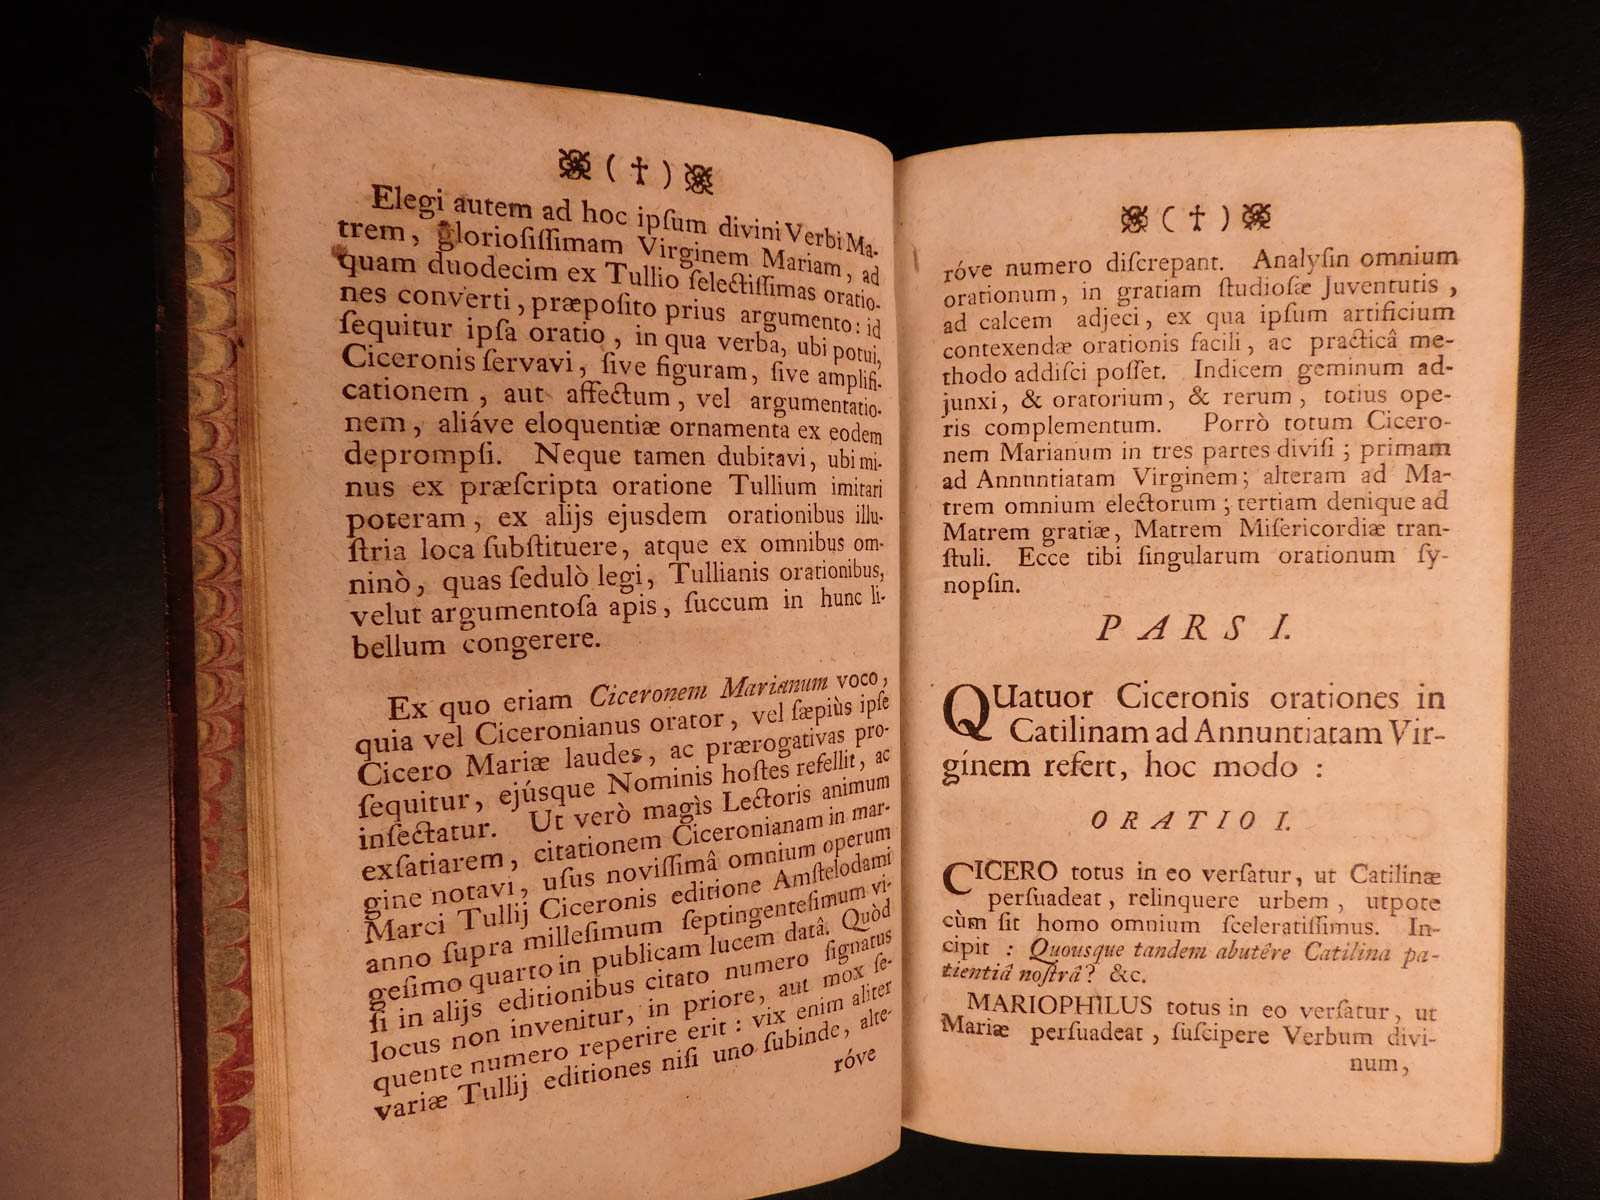 ( † )
Elegi autem ad hoc ipſum divini Verbi Ma-
trem, glorioſiſſimam Virginem Mariam, ad
quam duodecim ex Tullio ſelectiſſimas oratio-
nes converti, præpoſito prius argumento: id
ſequitur ipſa oratio, in qua verba, ubi potui,
Ciceronis ſervavi, ſive figuram, ſive amplifi-
cationem, aut affectum, vel argumentatio-
nem, aliáve eloquentiæ ornamenta ex eodem
deprompſi. Neque tamen dubitavi, ubi mi-
nus ex præſcripta oratione Tullium imitari
poteram, ex alijs ejusdem orationibus illu-
ſtria loca ſubſtituere, atque ex omnibus om-
ninò, quas ſedulò legi, Tullianis orationibus,
velut argumentoſa apis, ſuccum in hunc li-
bellum congerere.
Ex quo etiam Ciceronem Marianum voco,
quia vel Ciceronianus orator, vel ſæpiùs ipſe
Cicero Mariæ laudes, ac prærogativas pro-
ſequitur, ejúsque Nominis hoſtes refellit, ac
inſectatur. Ut verò magìs Lectoris animum
exſatiarem, citationem Ciceronianam in mar-
gine notavi, uſus noviſſimâ omnium operum
Marci Tullij Ciceronis editione Amſtelodami
anno ſupra milleſimum ſeptingenteſimum vi-
geſimo quarto in publicam lucem datâ. Quòd
ſi in alijs editionibus citato numero ſignatus
locus non invenitur, in priore, aut mox ſe-
quente numero reperire erit: vix enim aliter
variæ Tullij editiones niſi uno ſubinde, alte-
róve
( † )
róve numero diſcrepant. Analyſin omnium
orationum, in gratiam ſtudioſæ Juventutis,
ad calcem adjeci, ex qua ipſum artificium
contexendæ orationis facili, ac practicâ me-
thodo addiſci poſſet. Indicem geminum ad-
junxi, & oratorium, & rerum, totius ope-
ris complementum. Porrò totum Cicero-
nem Marianum in tres partes diviſi; primam
ad Annuntiatam Virginem; alteram ad Ma-
trem omnium electorum; tertiam denique ad
Matrem gratiæ, Matrem Miſericordiæ tran-
ſtuli. Ecce tibi ſingularum orationum ſy-
nopſin.
PARS I.
QUatuor Ciceronis orationes in
Catilinam ad Annuntiatam Vir-
ginem refert, hoc modo :
ORATIO I.
CICERO totus in eo verſatur, ut Catilinæ
perſuadeat, relinquere urbem, utpote
cùm ſit homo omnium ſceleratiſſimus. In-
cipit : Quousque tandem abutêre Catilina pa-
tientiâ noſtrâ? &c.
MARIOPHILUS totus in eo verſatur, ut
Mariæ perſuadeat, ſuſcipere Verbum divi-
num,